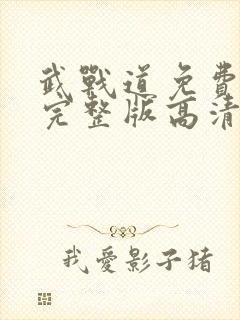 武戰道免費
完整版高清
我愛影子豬